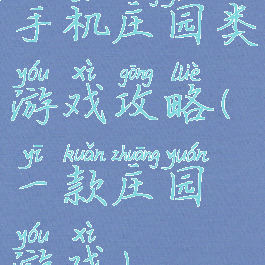 手机庄园类
yóu xì gōng lüè
游戏攻略(
yī kuǎn zhuāng yuán
一款庄园
yóu xì
游戏)